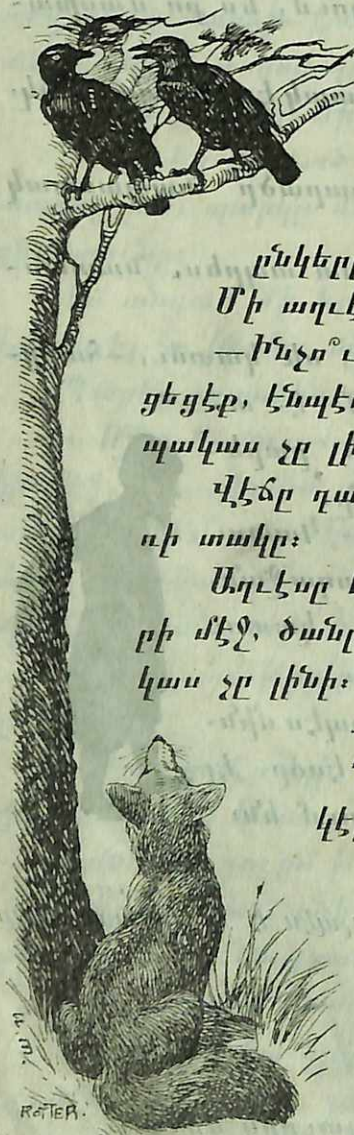 ընկերը
Մի աղւէ
— Ինչո՞ւ
ցեցէք, էնպէս
պակաս չը լի
Վէճը դա
ռի տակը։
Աղւէսը
րի մէջ. ծանր
կաս չը լինի։
կէ
ROTTER.